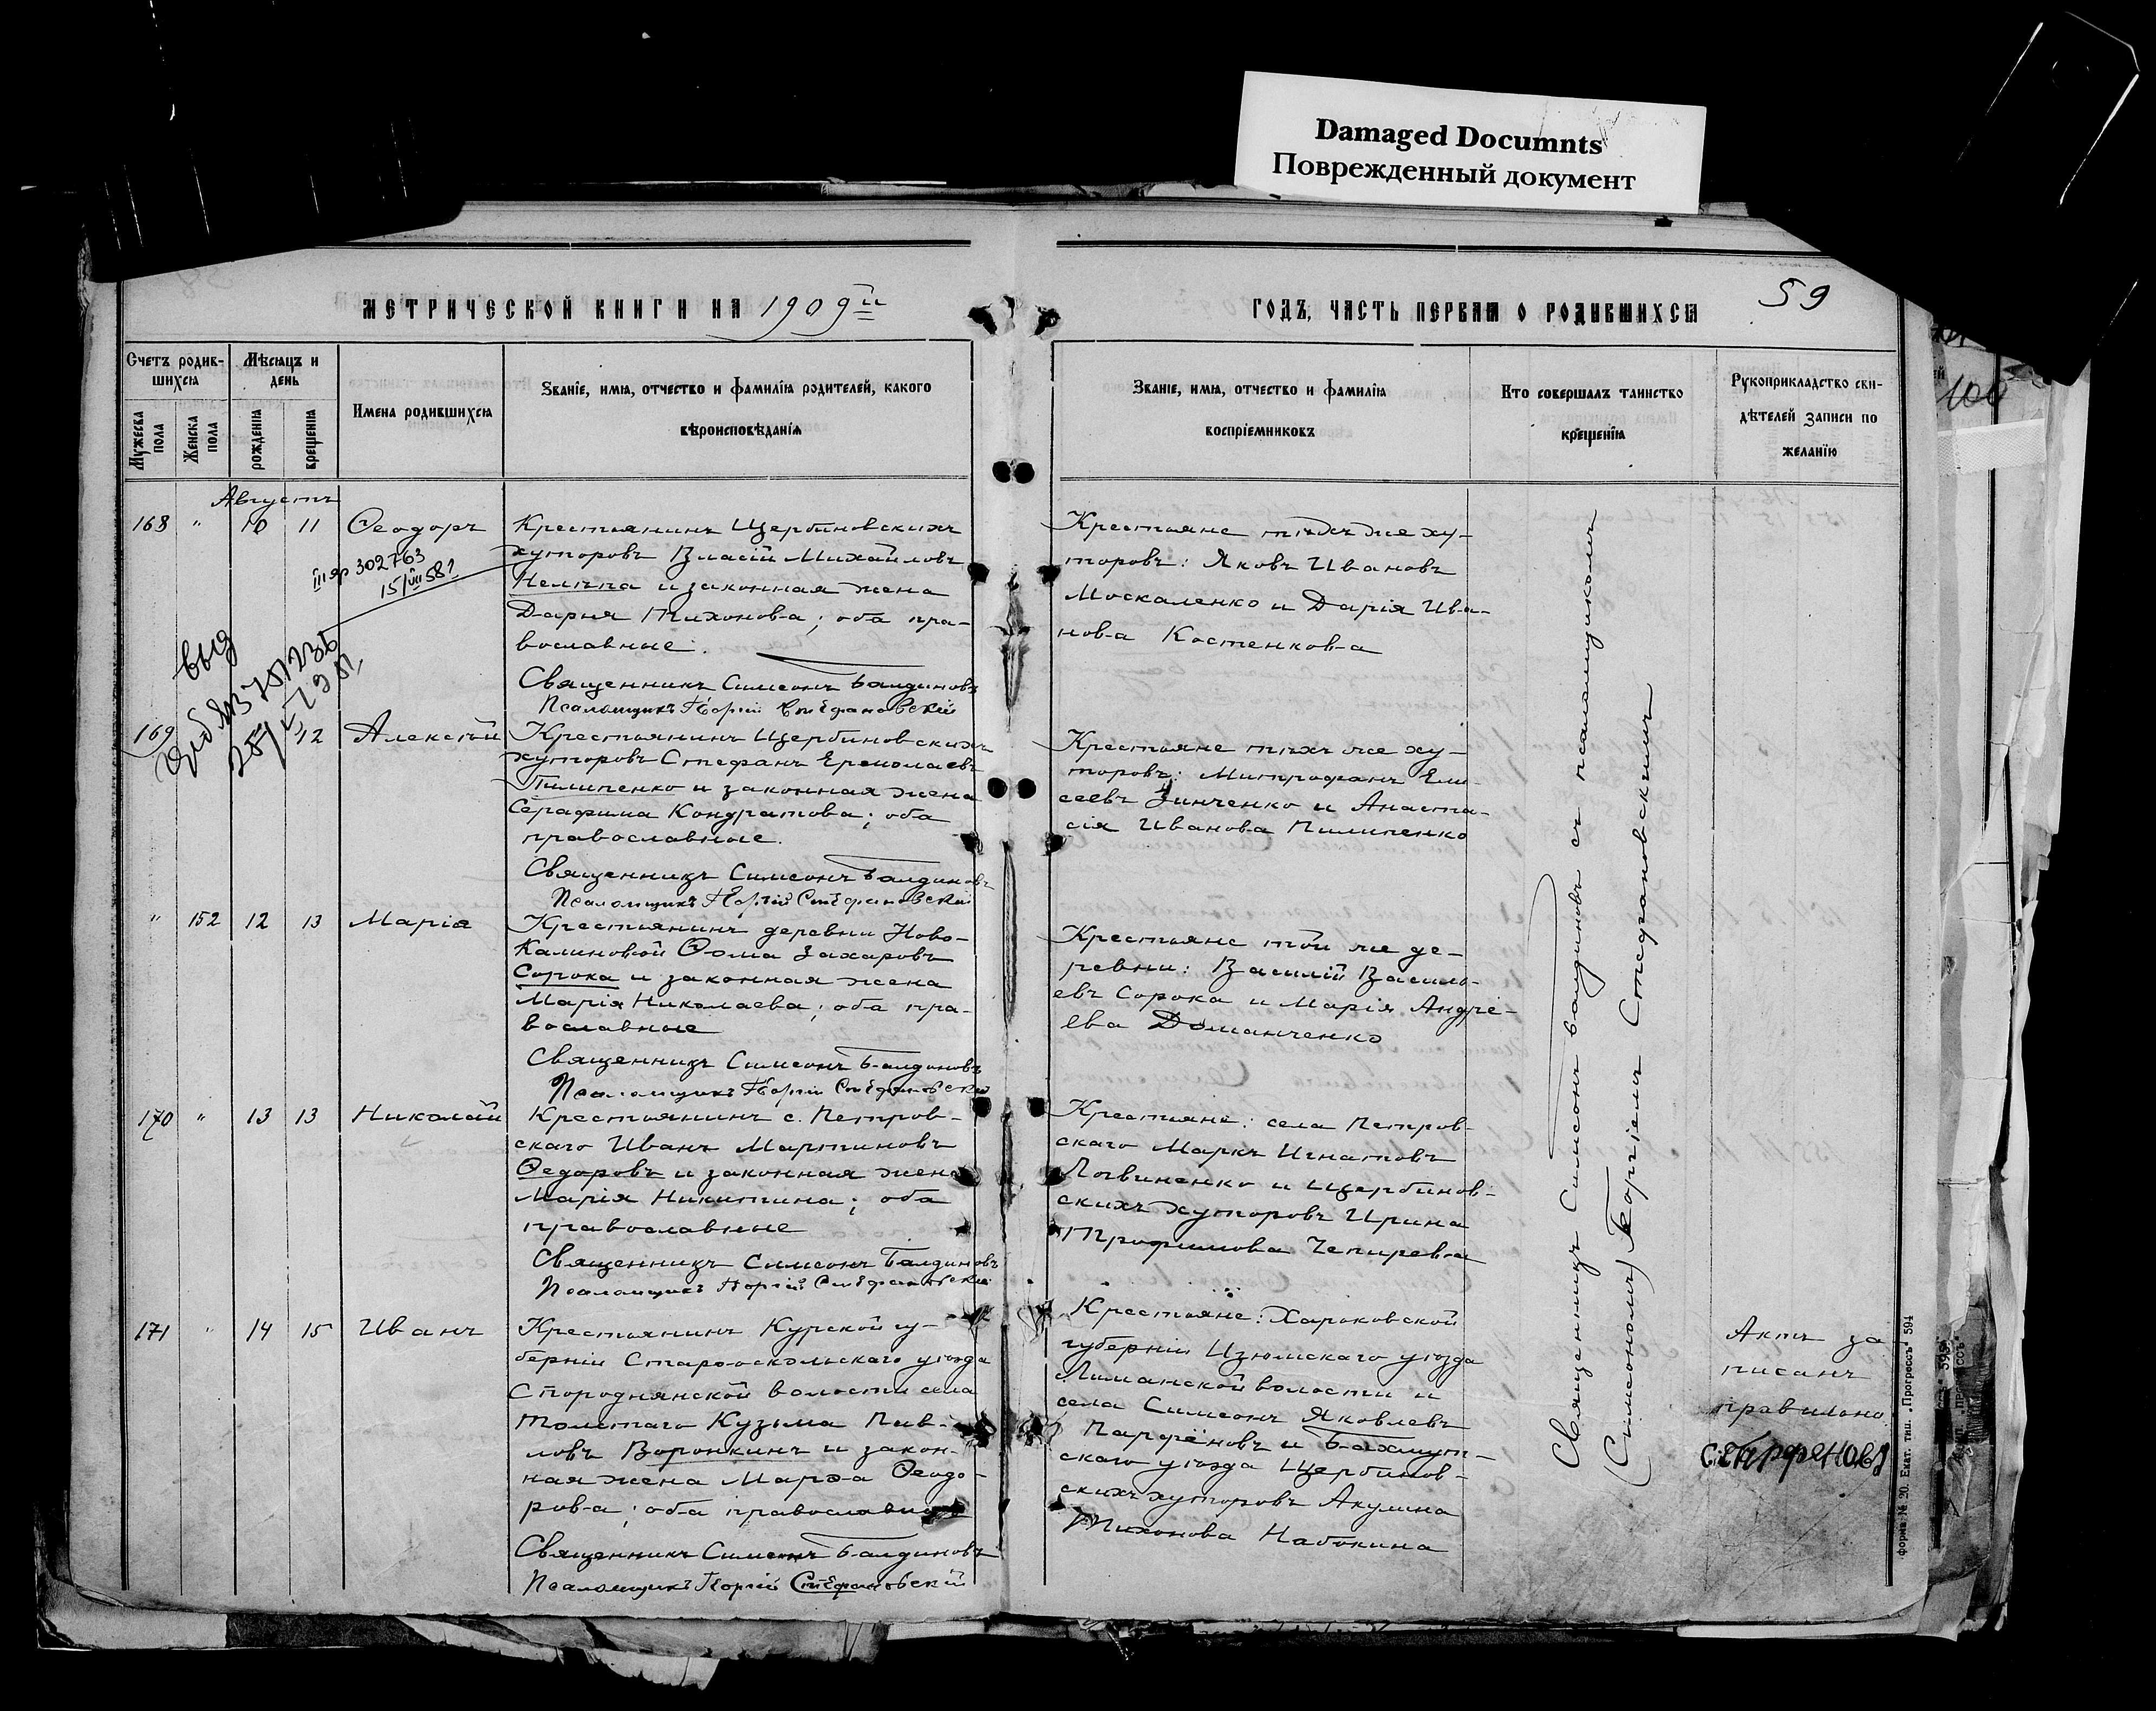 Damaged Documnts
Поврежденный документ
МЕТРИЧЕСКОЙ КНИГИ НА 1909й
ГОДЪ, ЧАСТЬ ПЕРВАЯ О РОДИВШИХСЯ
59
Счетъ родив-
шихся
Мужеска пола
Женска пола
Мѣсяцъ и
день
рожденія
крещенія
Имена родившихся
Званіе, имя, отчество и фамилія родителей, какого
вѣроисповѣданія
Званіе, имя, отчество и фамилія
воспріемниковъ
Кто совершалъ таинство
крещенія
Рукоприкладство сви-
дѣтелей записи по
желанію
100
Августъ
168 " 10 11 Ѳеодоръ
302763
15/VII 58г
Крестьянинъ Щербиновскихъ
хуторовъ Власій Михайловъ
Нелѣпа и законная жена
Дарья Тихонова; оба пра-
вославные.
Священникъ Симеонъ Балдиновъ
Псаломщикъ Георгій Стефановскій
Крестьяне тѣхъ же ху-
торовъ: Яковъ Ивановъ
Москаленко и Дарія Ива-
нова Костенкова
выд
169 12 Алексѣй
Крестьянинъ Щербиновскихъ
хуторовъ Стефанъ Ермолаевъ
Пилипенко и законная жена
Серафима Кондратова; оба
православные.
Священникъ Симеонъ Балдиновъ
Псаломщикъ Георгій Стефановскій
Крестьяне тѣхъ же ху-
торовъ: Митрофанъ Ели-
сеевъ Зинченко и Анаста-
сія Иванова Пилипенко
" 152 12 13 Марія
Крестьянинъ деревни Ново-
Калиновой Ѳома Захаровъ
Сорока и законная жена
Марія Николаева; оба пра-
вославные
Священникъ Симеонъ Балдиновъ
Псаломщикъ Георгій Стефановскій
Крестьяне той же де-
ревни: Василій Василь-
евъ Сорока и Марія Андре-
ева Доманченко
170 " 13 13 Николай
Крестьянинъ с. Петров-
скаго Иванъ Мартиновъ
Ѳедоровъ и законная жена
Марія Никитина; оба
православные
Священникъ Симеонъ Балдиновъ
Псаломщикъ Георгій Стефановскій
Крестьяне: села Петров-
скаго Маркъ Игнатовъ
Логвиненко и Щербинов-
скихъ хуторовъ Ирина
Трофимова Чепирева
171 " 14 15 Иванъ
Крестьянинъ Курской гу-
берніи Старо-оскольскаго уѣзда
волости села
Толстаго Кузьма Пав-
ловъ Воронкинъ и закон-
ная жена Марѳа Ѳеодо-
рова; оба православные
Священникъ Симеонъ Балдиновъ
Псаломщикъ Георгій Стефановскій
Крестьяне: Харьковской
губерніи Изюмскаго уѣзда
Лиманской волости и
села Симеонъ Яковлевъ
Парфёновъ и Бахмут-
скаго уѣзда Щербинов-
скихъ хуторовъ Акулина
Тихонова Набокина
Священникъ Симеонъ Балдиновъ съ псаломщикомъ
(Симеономъ) Георгіемъ Стефановскимъ
Актъ за
писанъ
правильно
С. Парфеновъ
форма № 20. Екат. тип. „Прогрессъ" 594